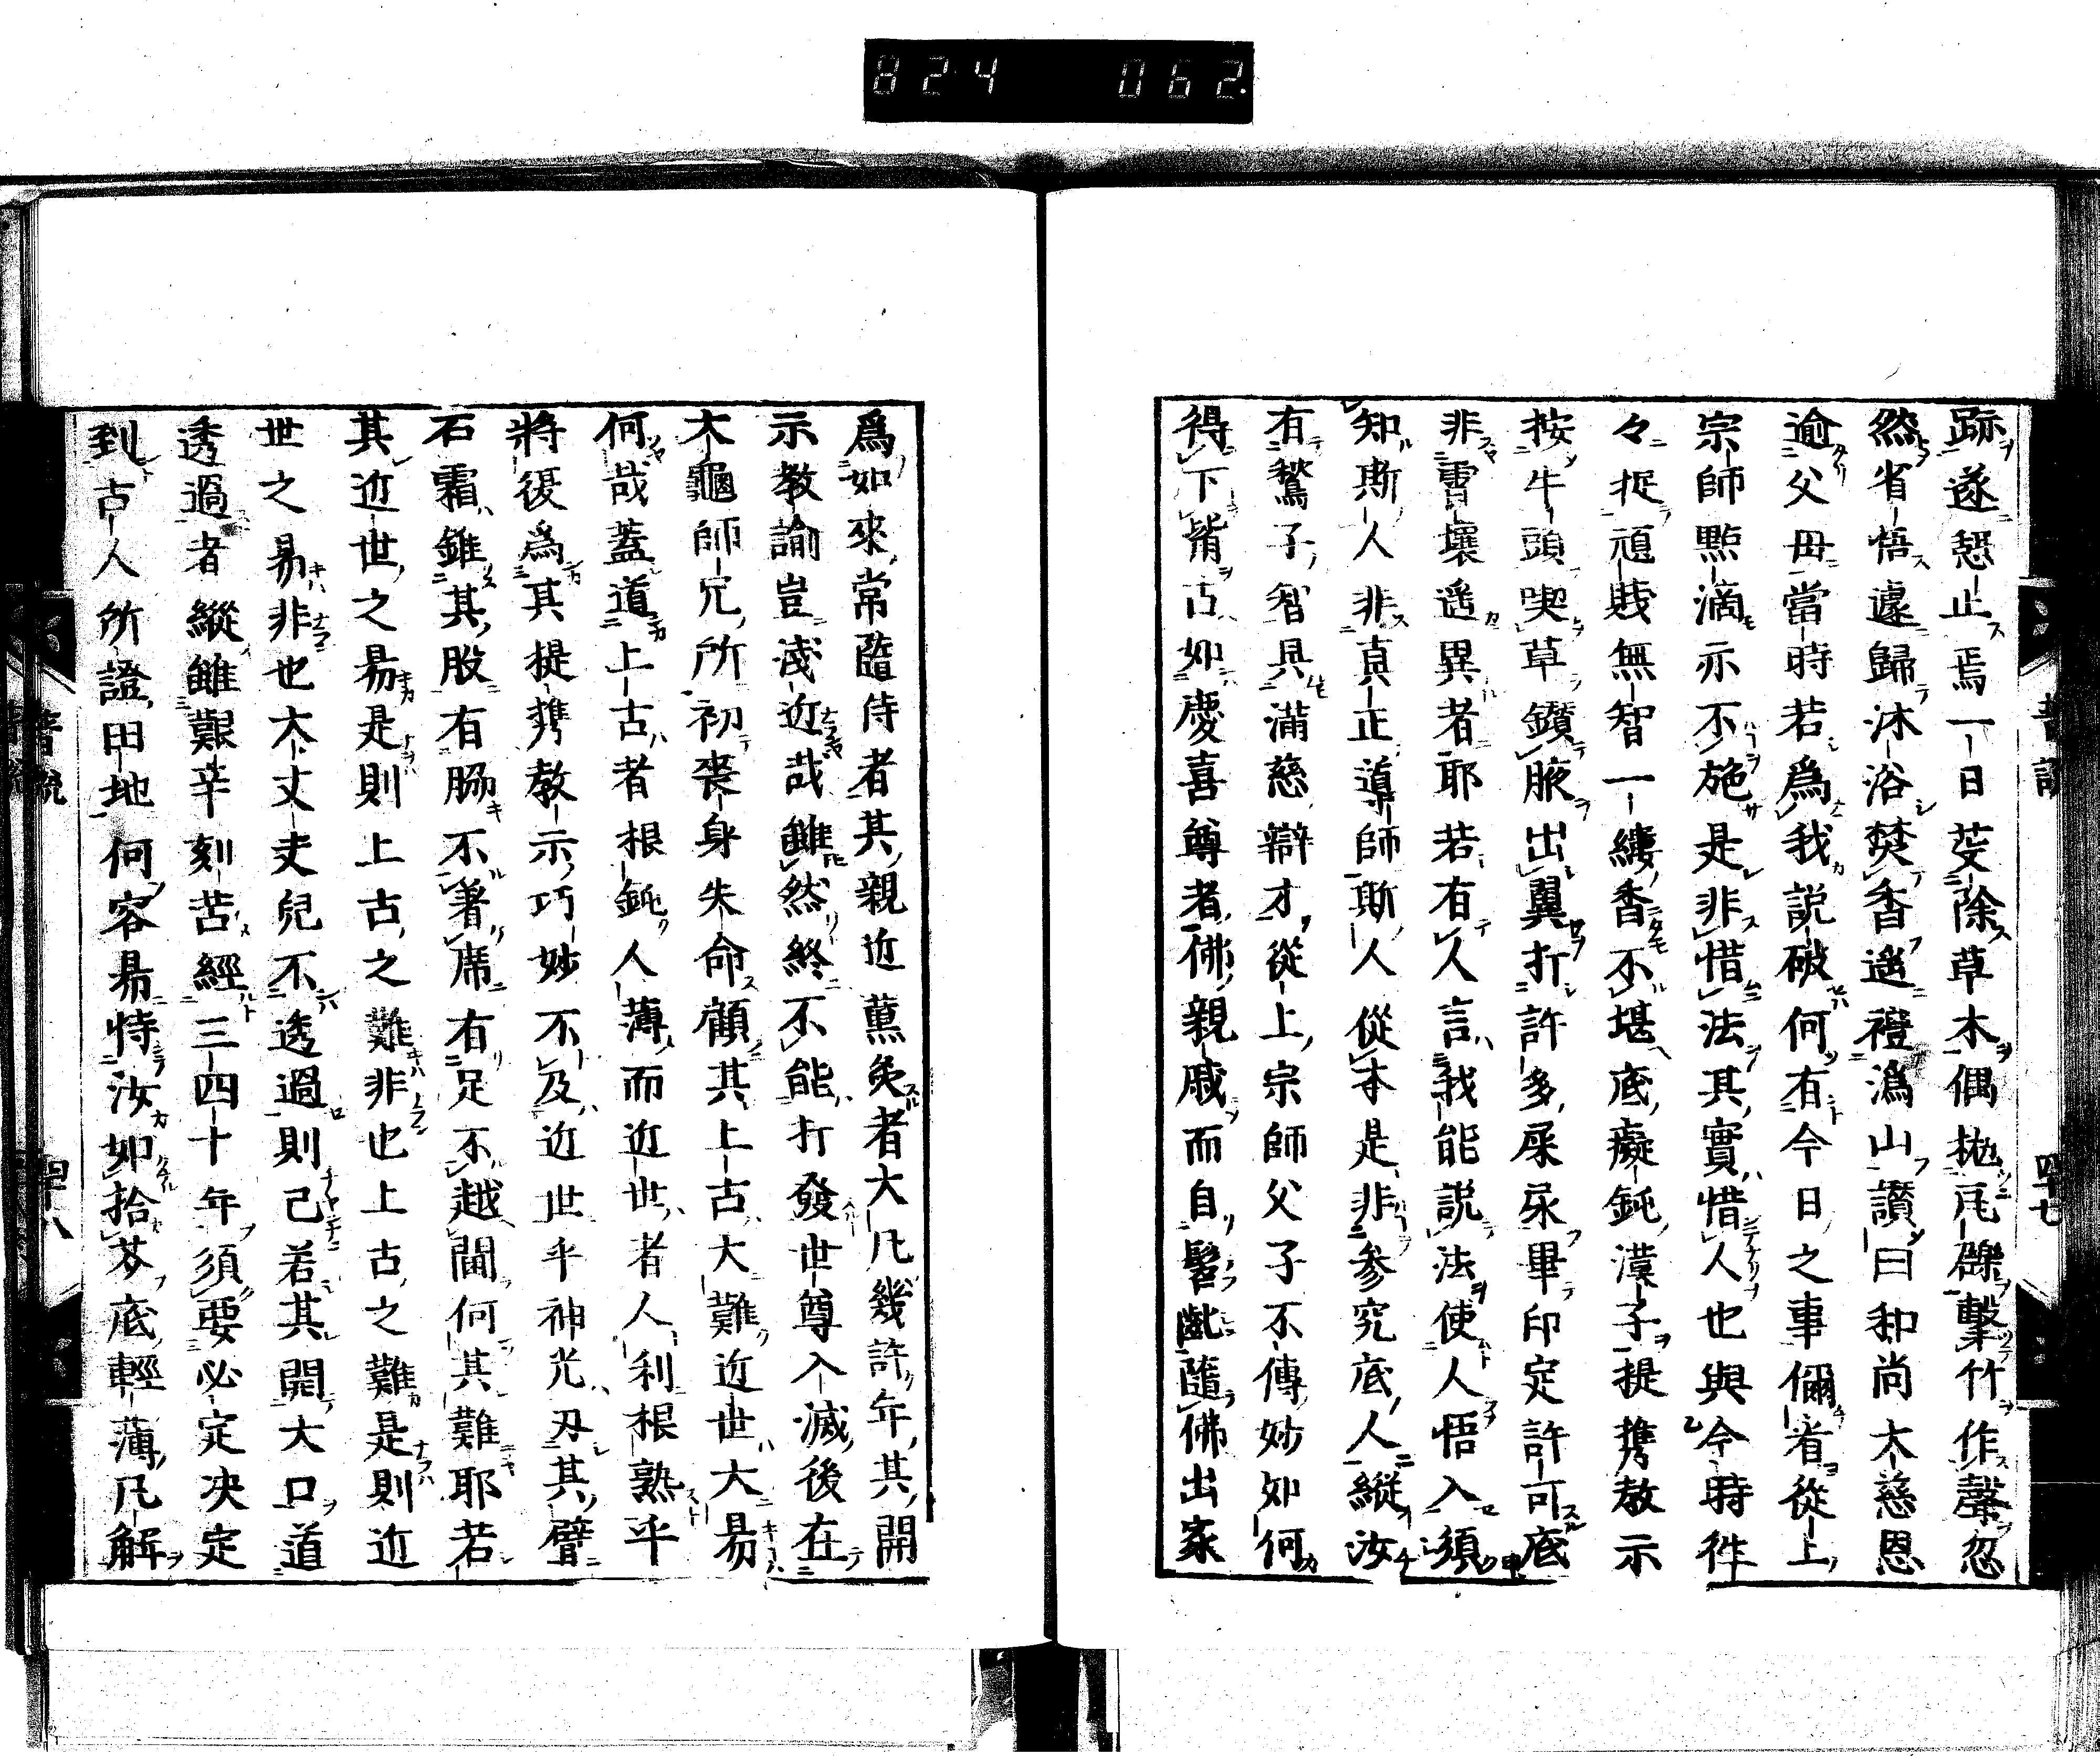 824 062
跡遂憩止焉一日芟除草木偶抛瓦礫擊竹作聲忽
然省悟遽歸沐浴焚香遙禮溈山讚曰和尚大慈恩
逾父母當時若爲我說破何有今日之事儞看從上
宗師點滴亦不施是非惜法其實惜人也與今時徃
々捉頑賎無智一縷香不堪底癡鈍漢子提携教示
按牛頭喫草鑽腋出翼打許多屎尿畢印定許可底
非霄壤遙異者耶若有人言我能說法使人悟入須
知斯人非真正導師斯人從本是非参究底人縱汝
有鶖子智具滿慈辯才從上宗師父子不傳妙如何
得下觜古如慶喜尊者佛親戚而自髫齔隨佛出家
爲如來常隨侍者其親近薰炙者大凡幾許年其開
示教諭豈淺近哉雖然終不能打發世尊入滅後在
大龜師兄所初喪身失命顧其上古大難近世大易
何哉蓋道上古者根鈍人薄而近世者人利根熟乎
將復爲其提携教示巧妙不及近世乎神光刃其臂
石霜錐其股有脇不著席有足不越閫何其難耶若
其近世之易是則上古之難非也上古之難是則近
世之易非也大丈夫兒不透過則己若其開大口道
透過者縱雖艱辛刻苦經三四十年須要必定决定
到古人所證田地何容易恃汝如拾芥底輕薄凡解
普說
四十七
普說
四十八